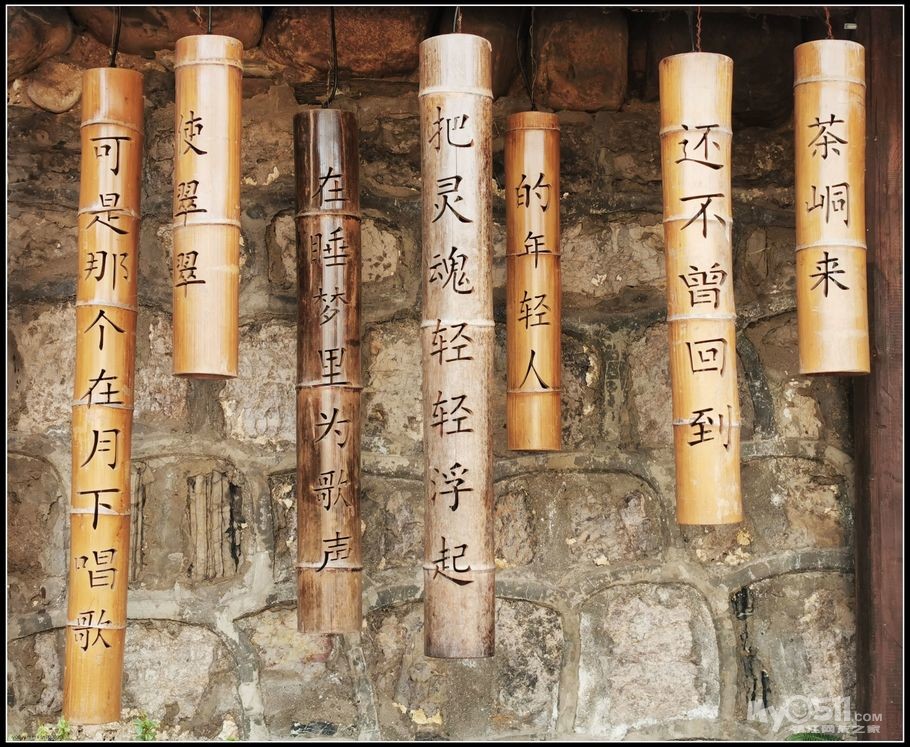 可是那个在月下唱歌
使翠翠
在睡梦里为歌声
把灵魂轻轻浮起
的年轻人
还不曾回到
茶峒来
ky0511.com